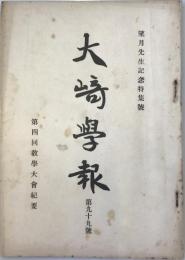 望月先生記念特集號
大崎學報
第九十九號
第四回敎學大會紀要